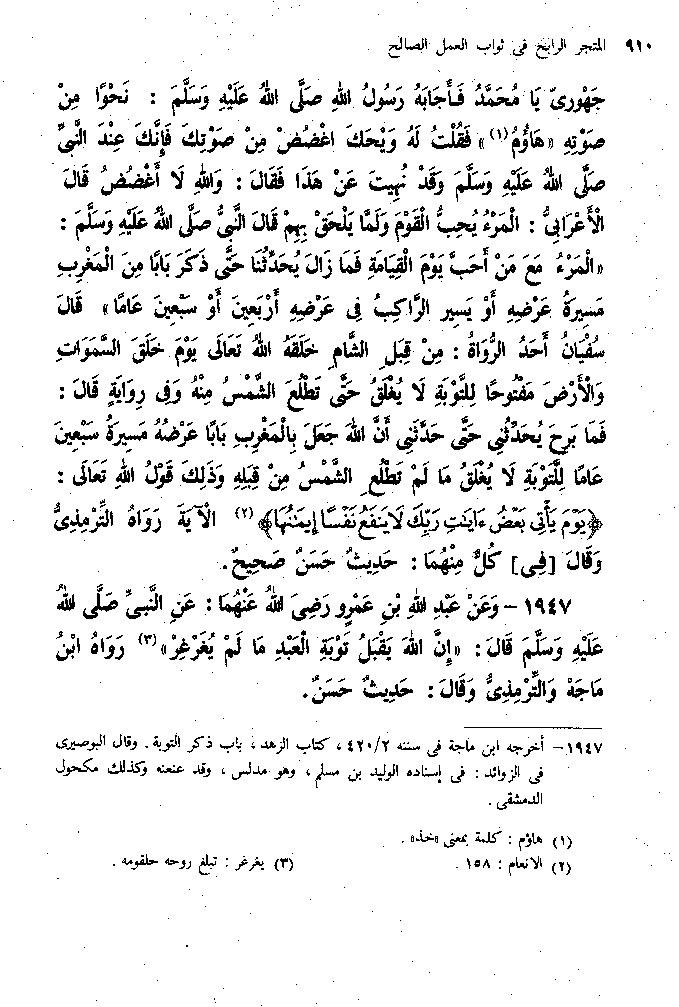 ٩١٠ المتجر الرابح فى ثواب العمل الصالح
جَهْوَرِىّ يَا مُحَمَّدُ فَأَجَابَهُ رَسُولُ اللهِ صَلَّى اللهُ عَلَيْهِ وَسَلَّمَ : نَحْوًا مِنْ
صَوْتِهِ «هَاؤُمُ(١)» فَقُلْتُ لَهُ وَيْحَكَ اغْضُضْ مِنْ صَوْتِكَ فَإِنَّكَ عِنْدَ النَّبِىِّ
صَلَّى اللهُ عَلَيْهِ وَسَلَّمَ وَقَدْ نُهِيتَ عَنْ هَذَا فَقَالَ : وَاللهِ لَا أَغْضُضُ قَالَ
الْأَعْرَابِىُّ : الْمَرْءُ يُحِبُّ الْقَوْمَ وَلَمَّا يَلْحَقْ بِهِمْ قَالَ النَّبِىُّ صَلَّى اللهُ عَلَيْهِ وَسَلَّمَ :
«الْمَرْءُ مَعَ مَنْ أَحَبَّ يَوْمَ الْقِيَامَةِ فَمَا زَالَ يُحَدِّثُنَا حَتَّى ذَكَرَ بَابًا مِنَ الْمَغْرِبِ
مَسِيرَةُ عَرْضِهِ أَوْ يَسِير الرَّاكِبُ فِى عَرْضِهِ أَرْبَعِينَ أَوْ سَبْعِينَ عَامًا» قَالَ
سُفْيَانُ أَحَدُ الرُّوَاةُ : مِنْ قِبَلِ الشَّامِ خَلَقَهُ اللهُ تَعَالَى يَوْمَ خَلَقَ السَّمَوَاتِ
وَالْأَرْضَ مَفْتُوحًا لِلتَّوْبَةِ لَا يُغْلَقُ حَتَّى تَطْلُعَ الشَّمْسُ مِنْهُ وَفِى رِوَايَةٍ قَالَ :
فَمَا بَرِحَ يُحَدِّثُنِى حَتَّى حَدَّثَنِى أَنَّ اللهَ جَعَلَ بِالْمَغْرِبِ بَابًا عَرْضُهُ مَسِيرَةُ سَبْعِينَ
عَامًا لِلتَّوْبَةِ لَا يُغْلَقُ مَا لَمْ تَطْلُعِ الشَّمْسُ مِنْ قِبَلِهِ وَذَلِكَ قَوْلُ اللهِ تَعَالَى :
﴿يَوْمَ يَأْتِى بَعْضُ ءَايَٰتِ رَبِّكَ لَا يَنفَعُ نَفْسًا إِيمَٰنُهَا﴾(٢) الْآيَةَ رَوَاهُ التِّرْمِذِىُّ
وَقَالَ [فِى] كُلٍّ مِنْهُمَا : حَدِيثٌ حَسَنٌ صَحِيحٌ.
١٩٤٧ - وَعَنْ عَبْدِ اللهِ بْنِ عَمْرٍو رَضِىَ اللهُ عَنْهُمَا : عَنِ النَّبِىِّ صَلَّى اللهُ
عَلَيْهِ وَسَلَّمَ قَالَ : «إِنَّ اللهَ يَقْبَلُ تَوْبَةَ الْعَبْدِ مَا لَمْ يُغَرْغِرْ»(٣) رَوَاهُ ابْنُ
مَاجَهْ وَالتِّرْمِذِىُّ وَقَالَ : حَدِيثٌ حَسَنٌ.
١٩٤٧- أخرجه ابن ماجة فى سننه ٤٢٠/٢ ، كتاب الزهد ، باب ذكر التوبة . وقال البوصيرى
فى الزوائد : فى إسناده الوليد بن مسلم ، وهو مدلس ، وقد عنعنه وكذلك مكحول
الدمشقى .
(١) هاؤم : كلمة بمعنى «خذ» .
(٢) الانعام : ١٥٨ . (٣) يغرغر : تبلغ روحه حلقومه .